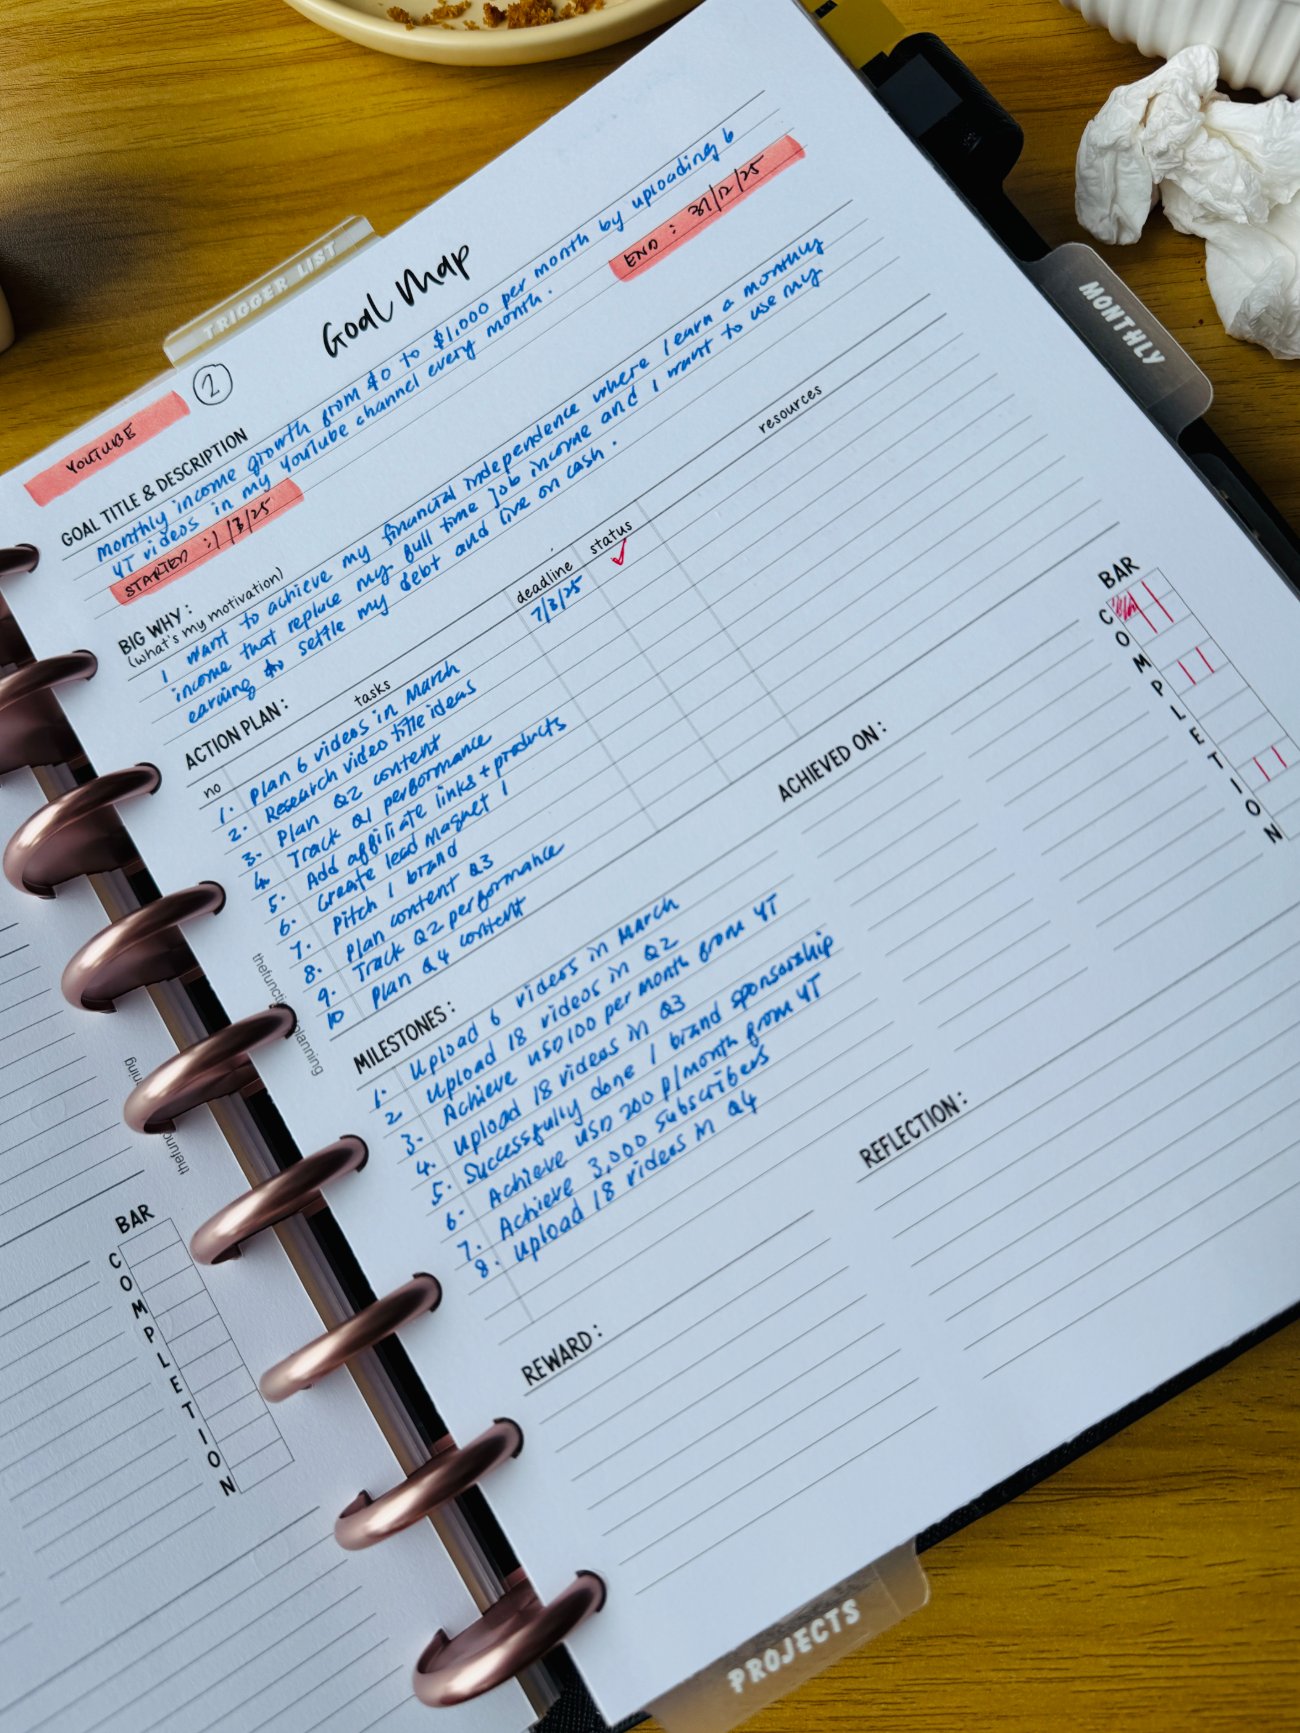 TRIGGER LIST
Goal Map
YOUTUBE
2
GOAL TITLE & DESCRIPTION
Monthly income growth from $0 to $1,000 per month by uploading 6
YT videos in my YouTube channel every month.
STARTED : 1/3/25
END : 31/12/25
BIG WHY :
(what's my motivation)
I want to achieve my financial independence where I earn a monthly
income that replace my full time job income and I want to use my
earning to settle my debt and live on cash.
ACTION PLAN :
no tasks deadline status resources
1. Plan 6 videos in March 7/3/25 ✓
2. Research video title ideas
3. Plan Q2 content
4. Track Q1 performance
5. Add affiliate links + products
6. Create lead magnet 1
7. Pitch 1 brand
8. Plan content Q3
9. Track Q2 performance
10 Plan Q4 content
MILESTONES :
ACHIEVED ON :
1. Upload 6 videos in March
2 Upload 18 videos in Q2
3. Achieve USD100 per month from YT
4. Upload 18 videos in Q3
5. Successfully done 1 brand sponsorship
6. Achieve USD 200 p/month from YT
7. Achieve 3,000 subscribers
8. Upload 18 videos in Q4
REWARD :
REFLECTION :
BAR
COMPLETION
BAR
COMPLETION
MONTHLY
PROJECTS